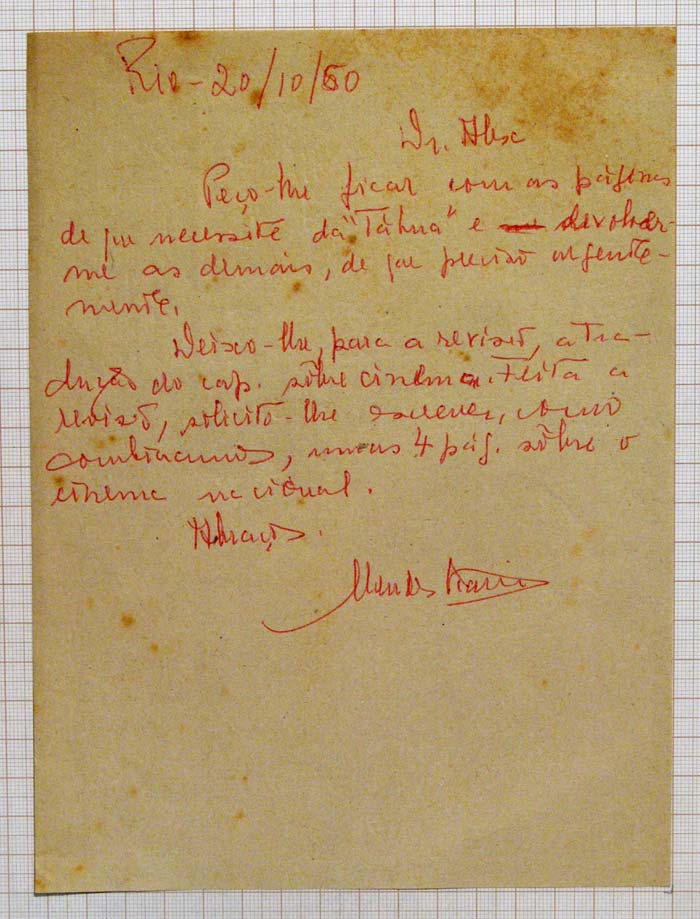 Rio - 20/10/60
Dr. Alex
Peço-lhe ficar com as páginas
de que necessite da "Tábua" e devolver-
me as demais, de que preciso urgente-
mente.
Deixo-lhe, para a revisão, a tra-
dução do cap. sôbre cinema. Feita a
revisão, solicito-lhe escrever, como
combinamos, umas 4 pág. sôbre o
cinema nacional.
Abraços.
Mendes